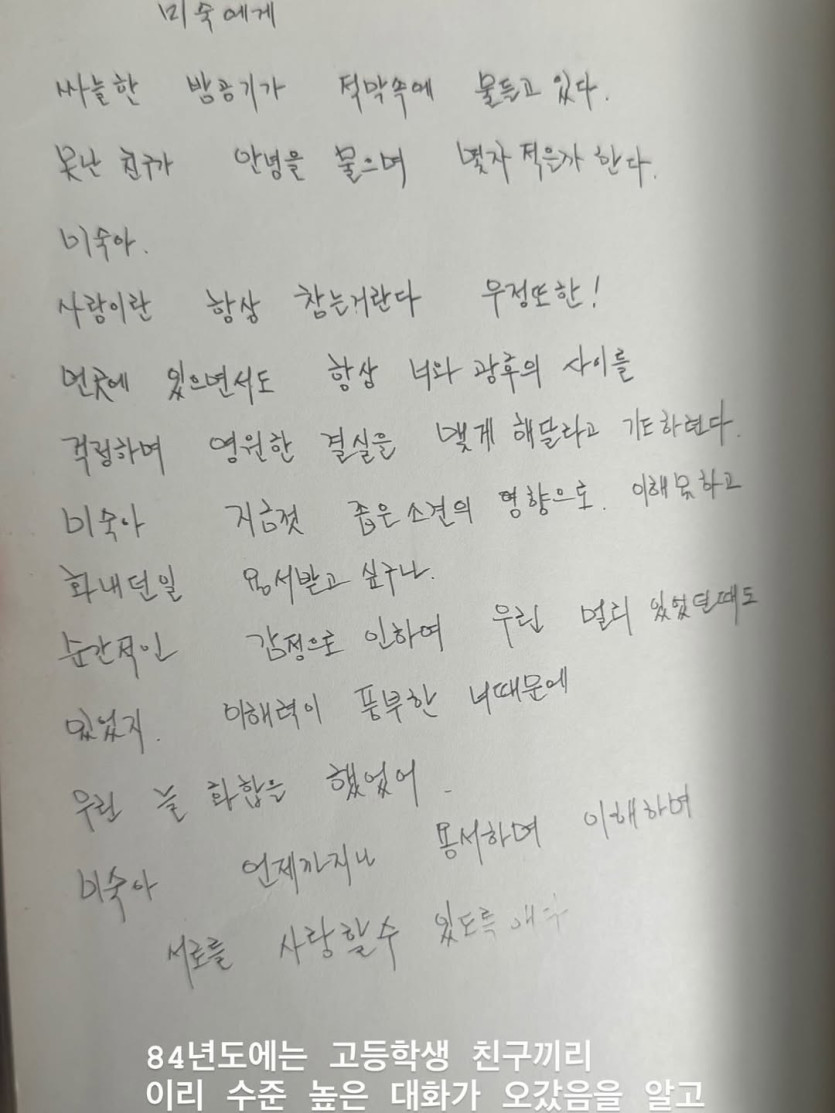 미숙에게
싸늘한 밤공기가 적막속에 물들고 있다.
못난 친구가 안녕을 물으며 몇자 적은가 한다.
미숙아.
사랑이란 항상 참는거란다 우정또한!
먼곳에 있으면서도 항상 너와 광후의 사이를
걱정하며 영원한 결실을 맺게 해달라고 기도하련다.
미숙아 지금껏 좁은 소견의 영향으로. 이해못하고
화내던일 용서받고 싶구나.
순간적인 감정으로 인하여 우린 멀리 있었던때도
있었지. 이해력이 풍부한 너때문에
우린 늘 화합을 했었어.
미숙아 언제까지나 용서하며 이해하며
서로를 사랑할수 있도록
84년도에는 고등학생 친구끼리
이리 수준 높은 대화가 오갔음을 알고